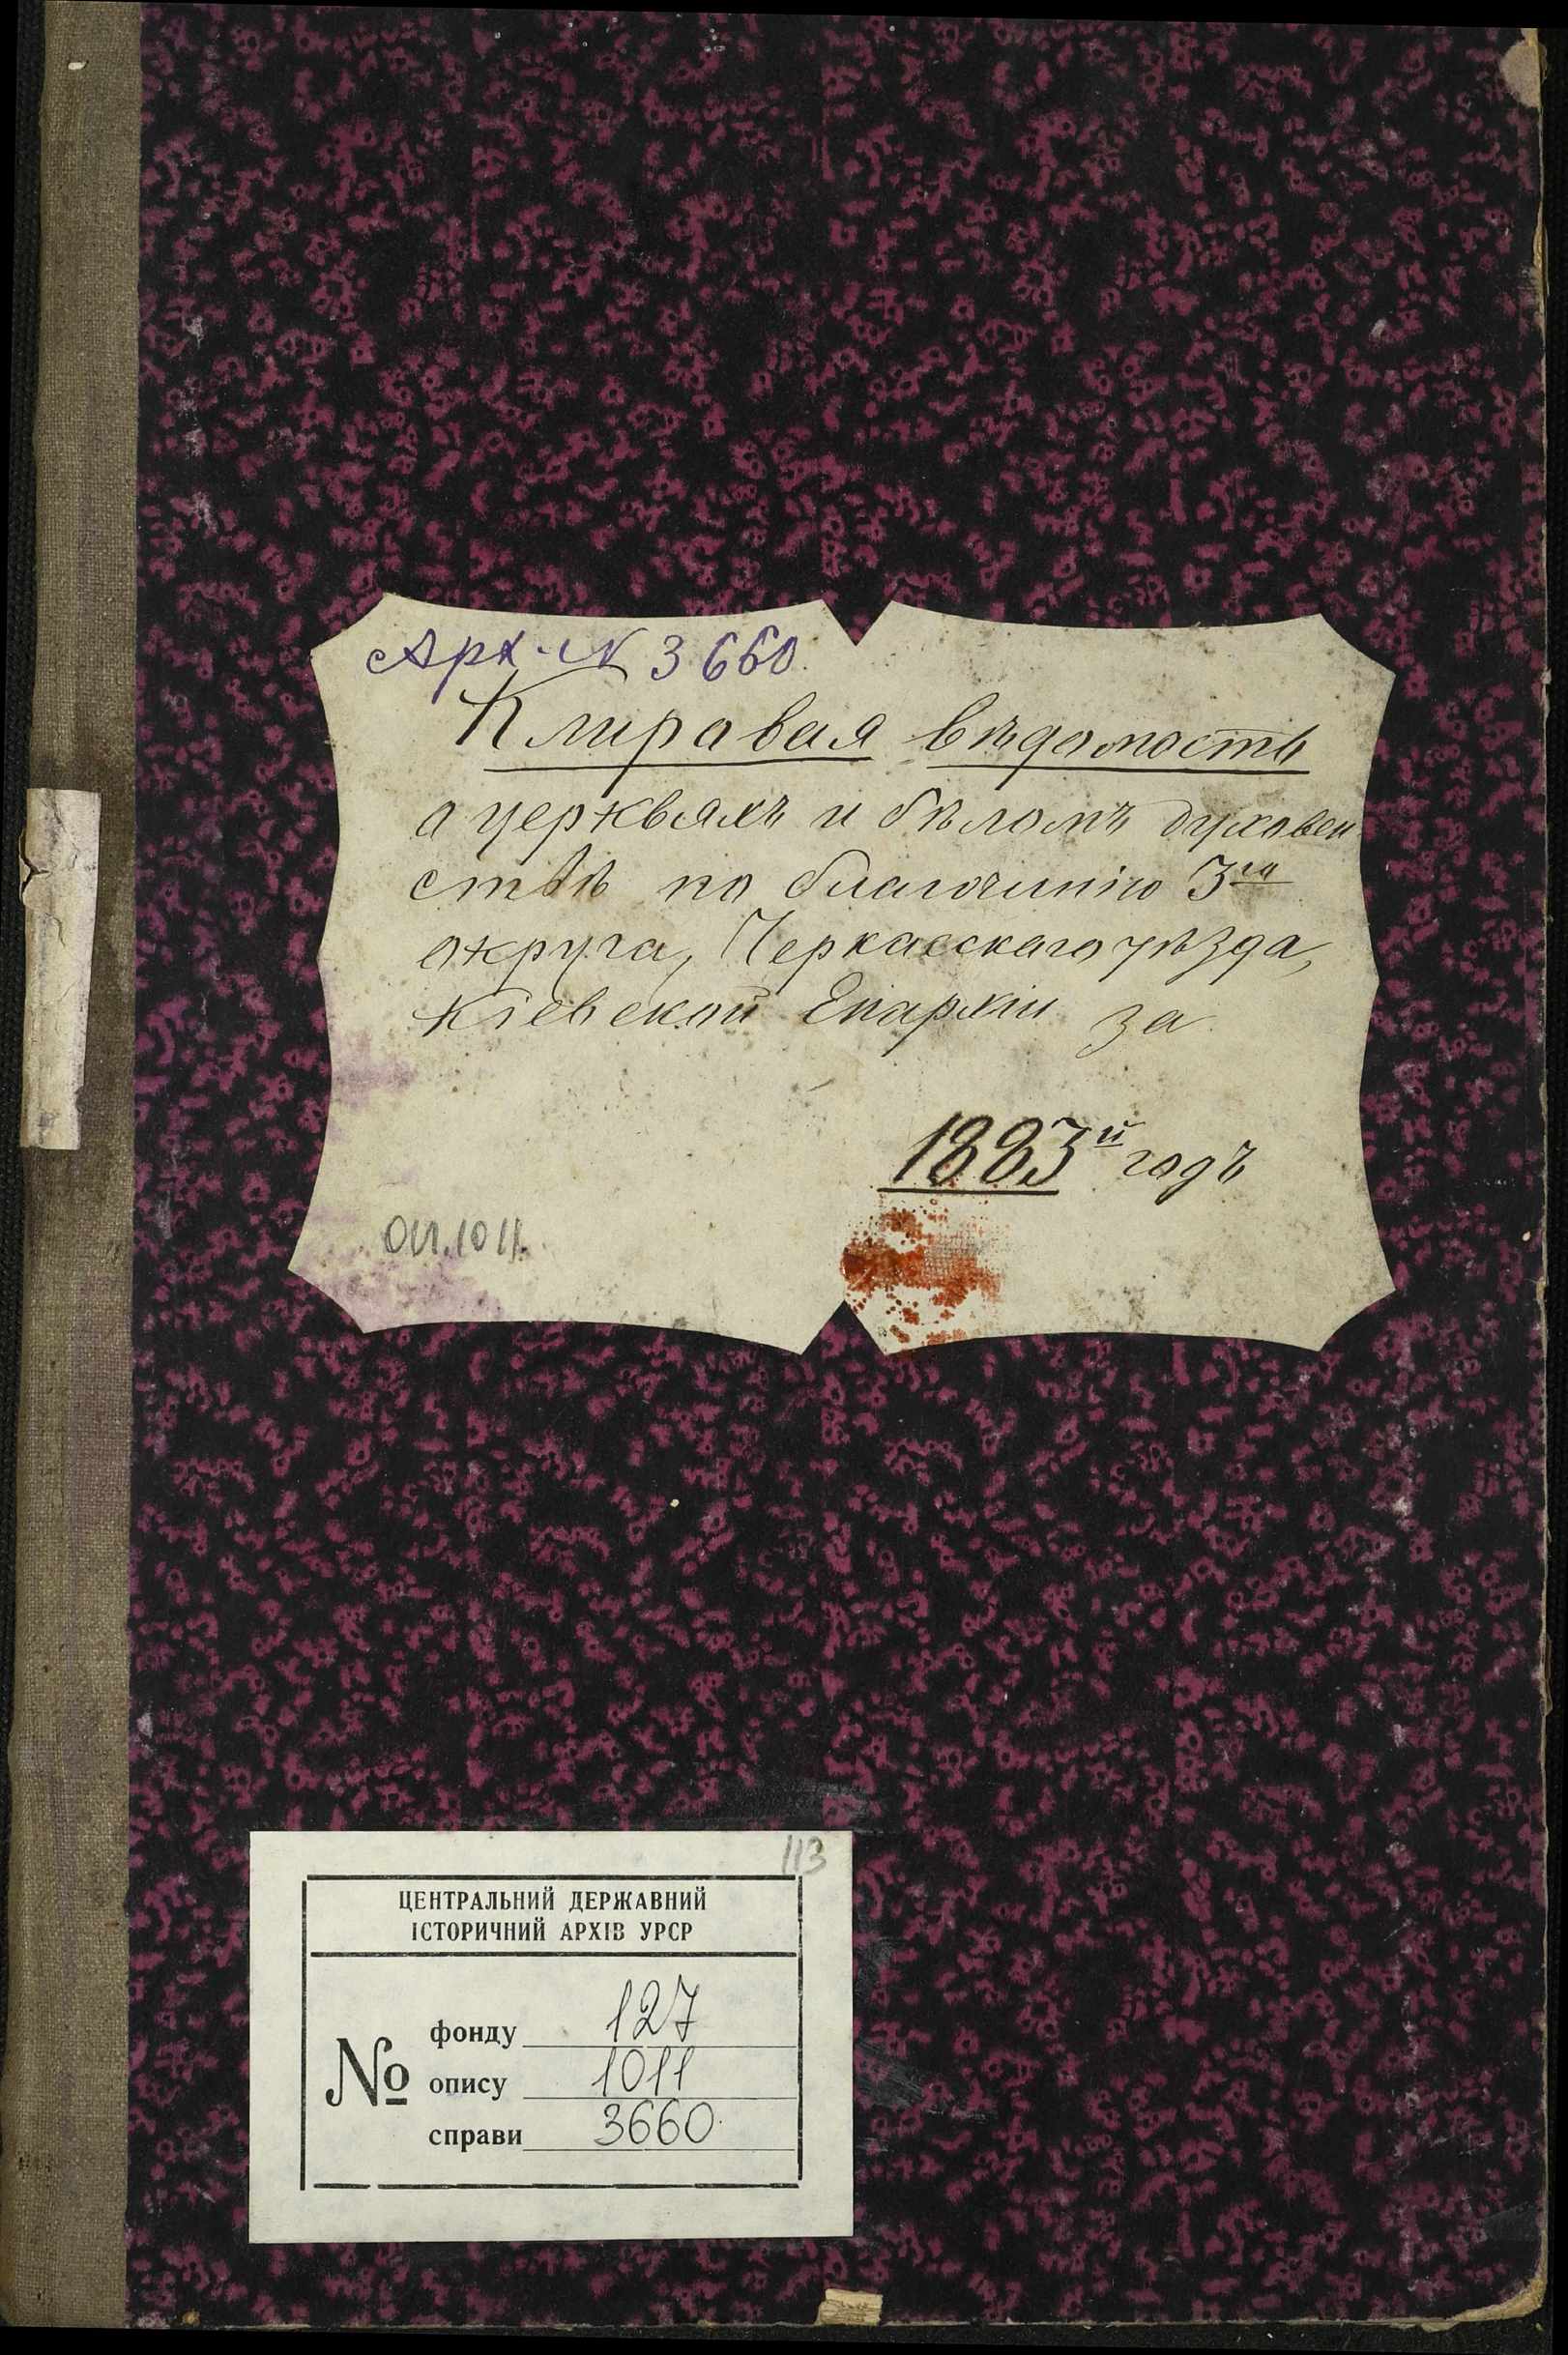 Арх. № 3660.
Клировая вѣдомость
о церквяхъ и бѣломъ духовен
ствѣ по благочинію 3го
округа, Черкасскаго уѣзда,
Кіевской Епархіи за
1883й годъ
оп. 1011.
113
ЦЕНТРАЛЬНИЙ ДЕРЖАВНИЙ
ІСТОРИЧНИЙ АРХІВ УРСР
фонду 127
№ опису 1011
справи 3660